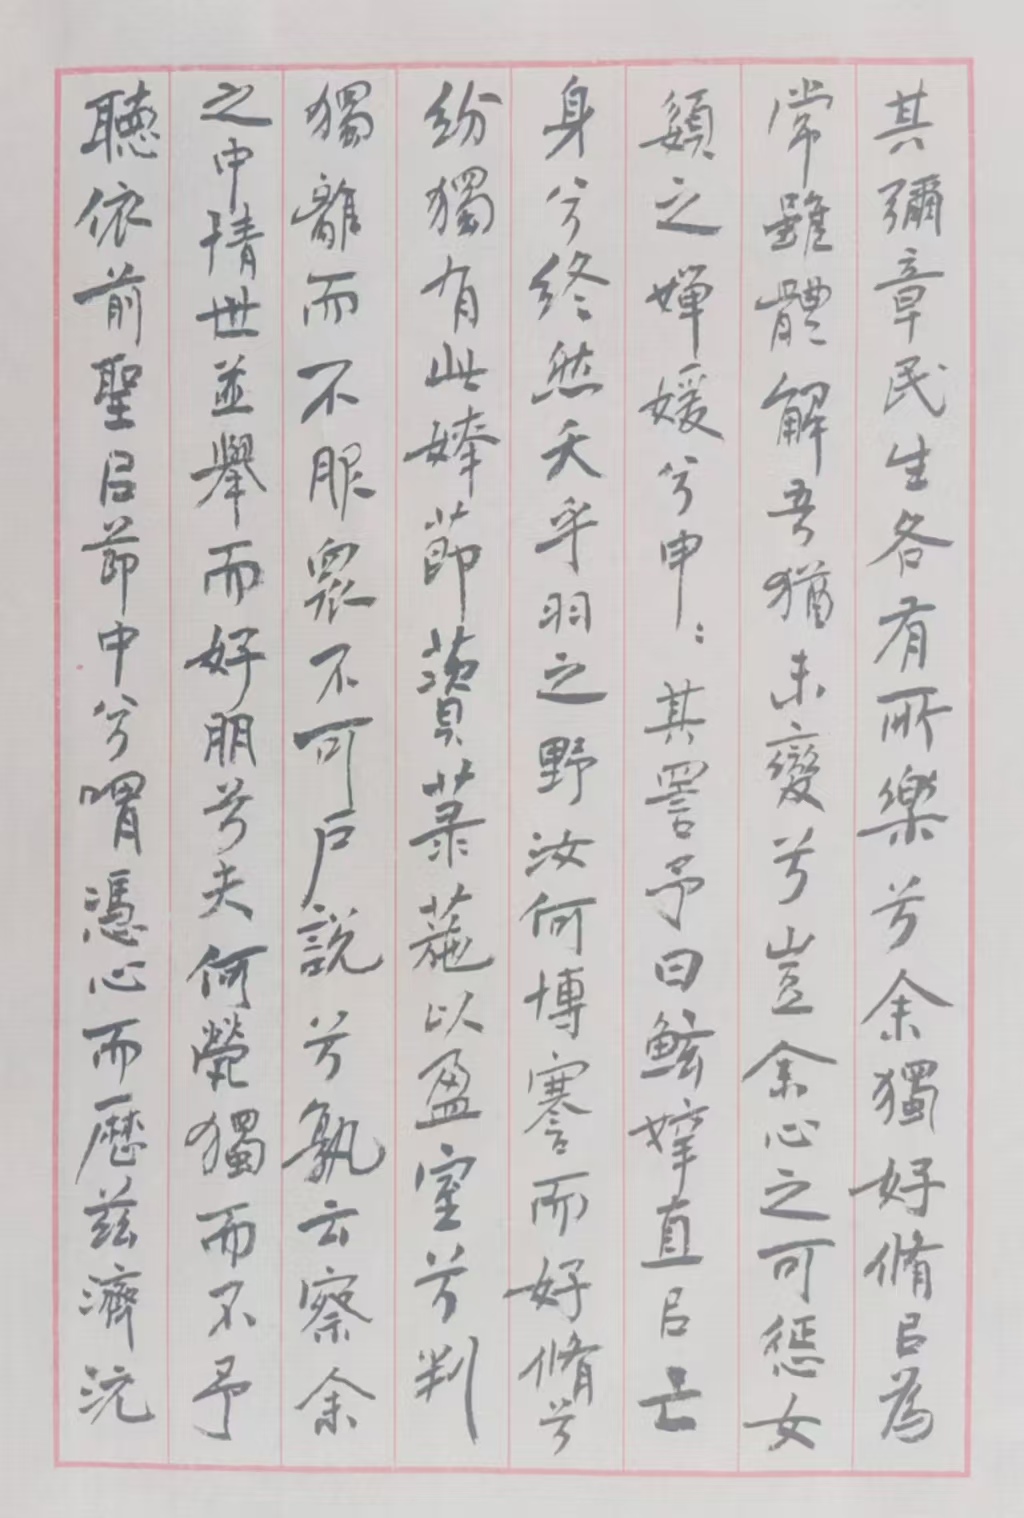 其彌章民生各有所樂兮余獨好脩㠯為
常雖體解吾猶未變兮豈余心之可懲女
嬃之嬋媛兮申:其詈予曰鮌婞直㠯亡
身兮終然夭乎羽之野汝何博謇而好脩兮
紛獨有此姱節薋菉葹以盈室兮判
獨離而不服眾不可戶說兮孰云察余
之中情世並舉而好朋兮夫何煢獨而不予
聽依前聖㠯節中兮喟憑心而歷茲濟沅